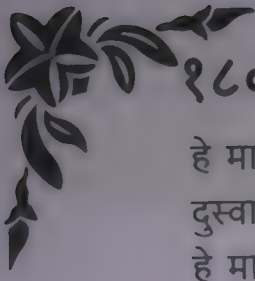 १८०
हे मा
दुस्वा
हे मा